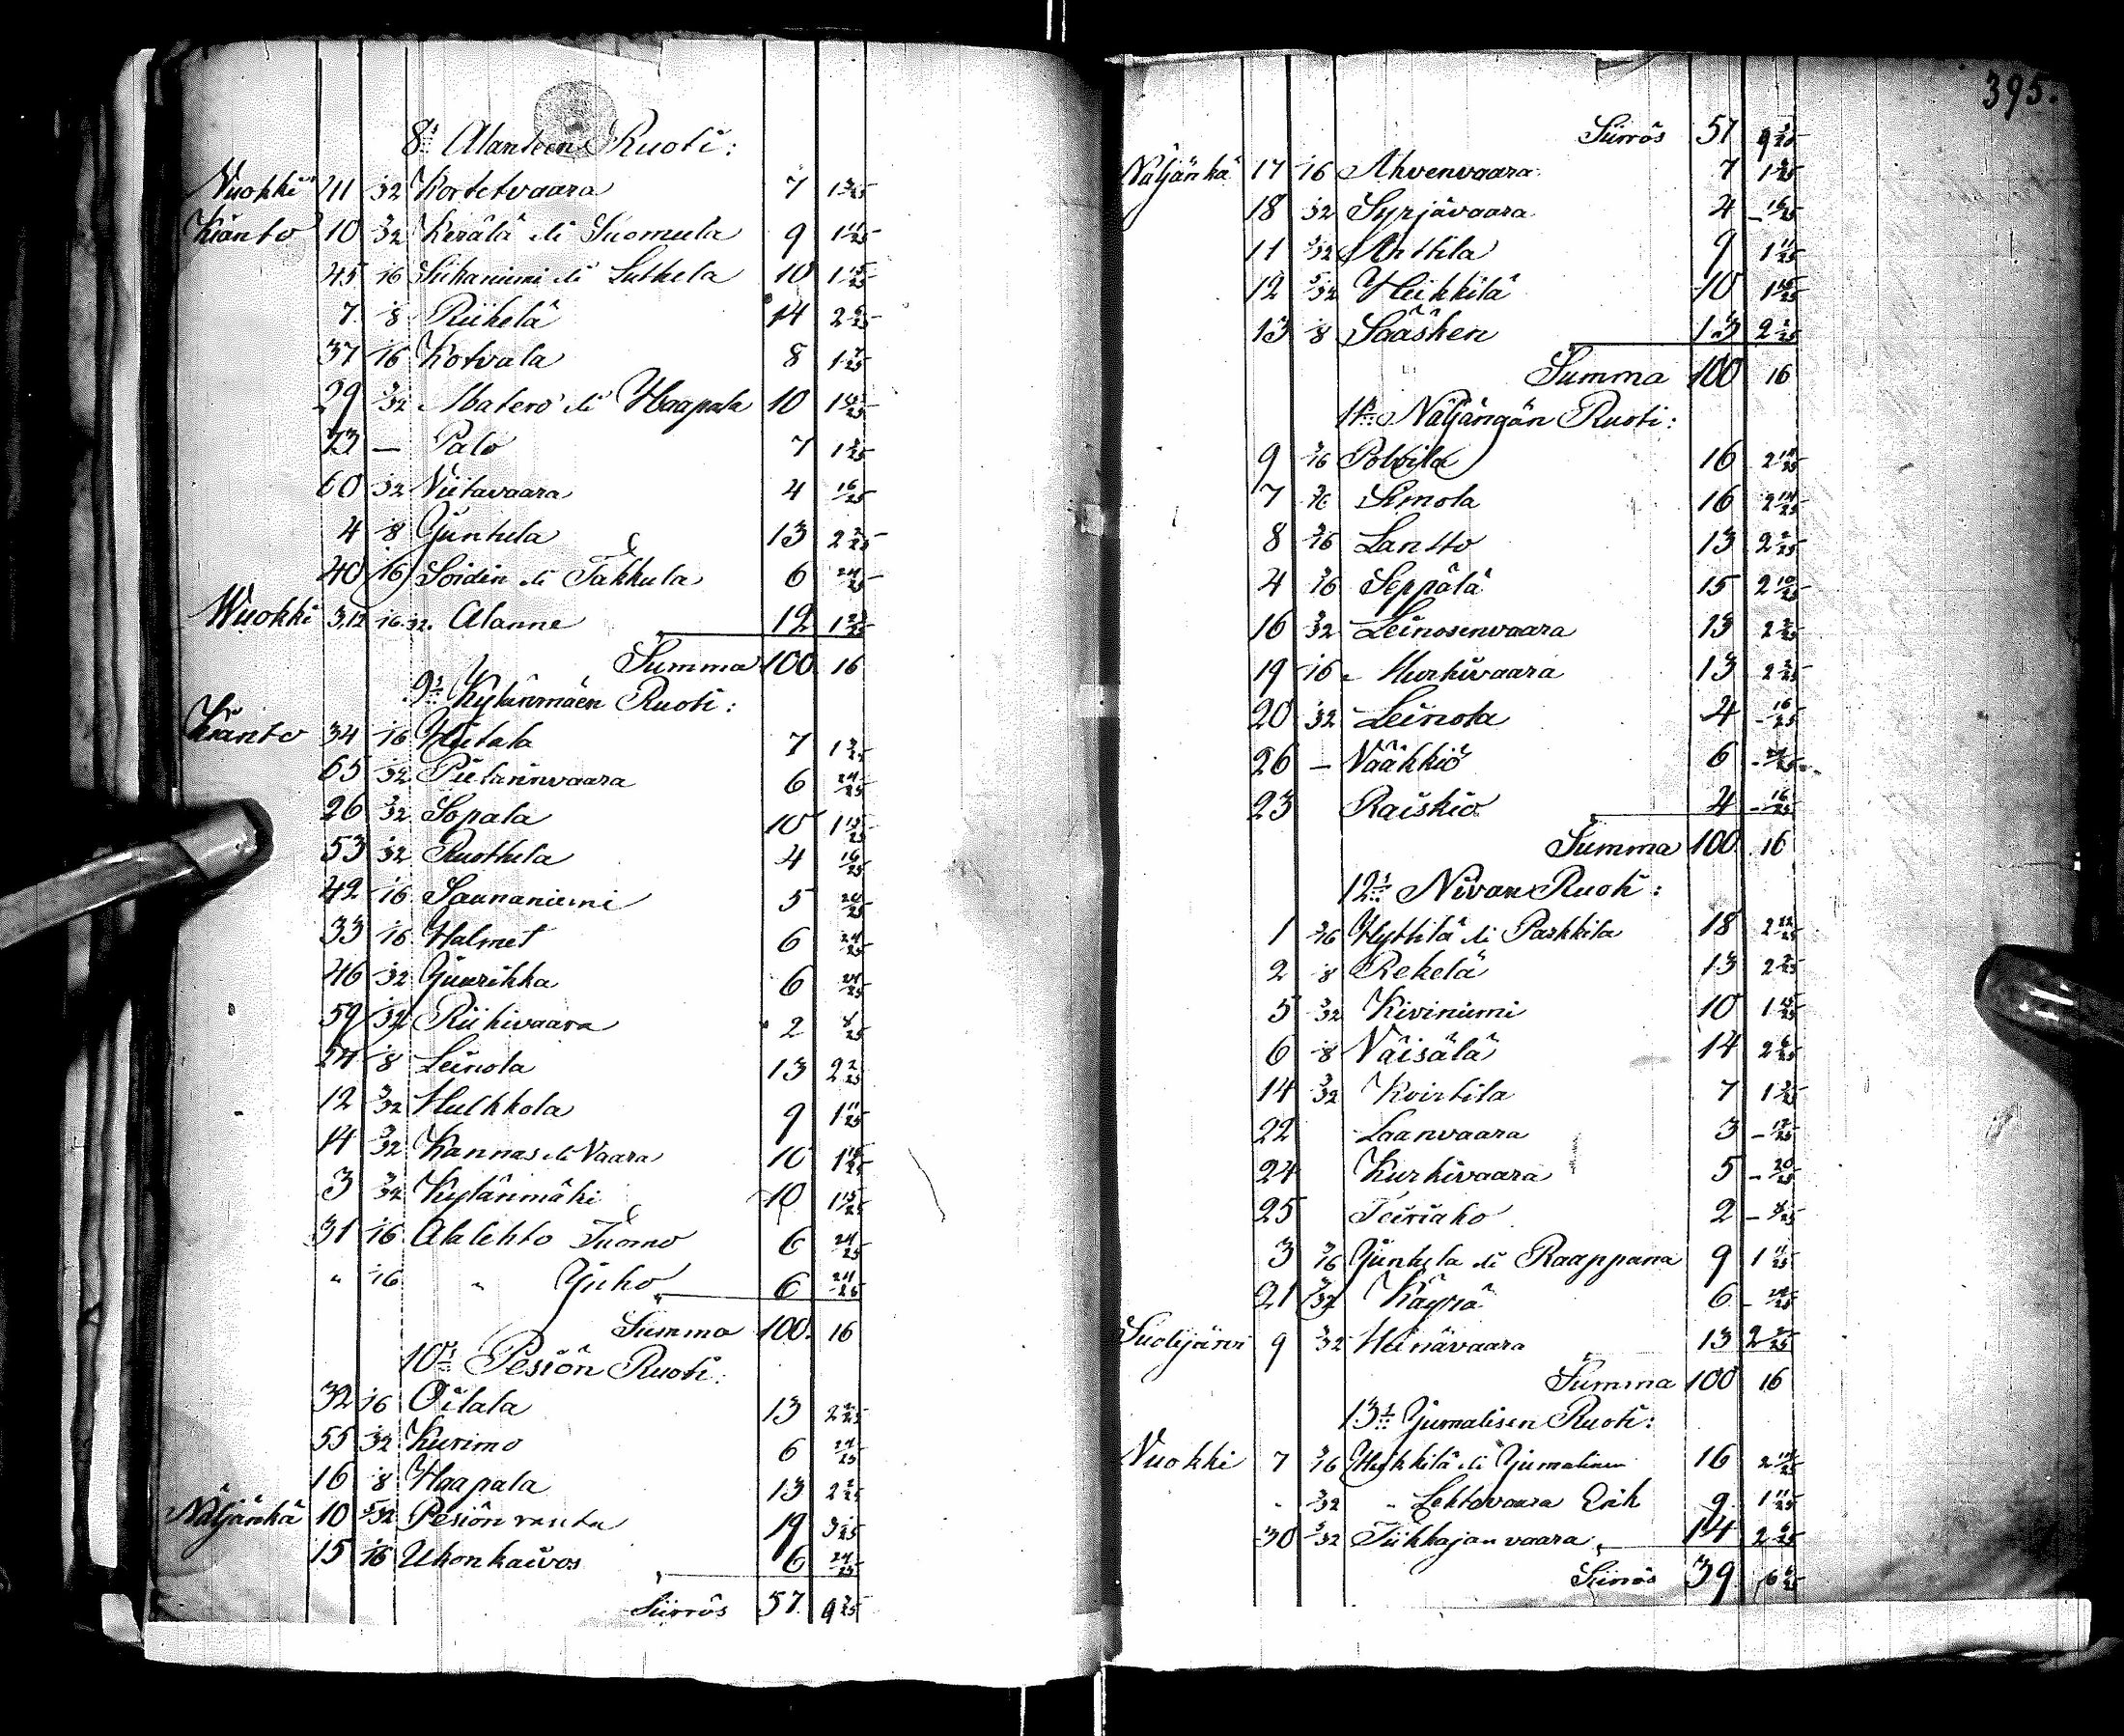 8:s Alanteen Ruoti:
Nuokki 11 1/32 Kortetvaara 7 1 3/25
Kianto 10 3/32 Kerälä eli Suomula 9 1 11/25
45 1/16 Siikaniemi eli Lutkela 10 1 15/25
7 1/8 Riihelä 14 2 6/25
37 1/16 Kotvala 8 1 7/25
29 3/32 Matero eli Haapala 10 1 15/25
73 — Palo 7 1 3/25
60 1/32 Viitavaara 4 16/25
4 1/8 Juntula 13 2 2/25
40 1/16 Soidin eli Takkula 6 24/25
Wuokki 3,12 1/16 1/32 Alanne 12 1 23/25
Summa 100 16
9:s Kylänmäen Ruoti:
Kianto 34 1/16 Hiitala 7 1 3/25
65 1/32 Pietarinvaara 6 24/25
26 3/32 Sopala 10 1 15/25
53 1/32 Ruottula 4 16/25
42 1/16 Saunaniemi 5 20/25
33 1/16 Halmet 6 24/25
46 1/32 Juurikka 6 24/25
59 1/32 Riihivaara 2 8/25
24 1/8 Leinola 13 2 2/25
12 3/32 Hulkkola 9 1 11/25
14 3/32 Kannas eli Vaara 10 1 15/25
3 3/32 Kylänmäki 10 1 15/25
31 1/16 Alalehto Tuomo 6 24/25
" 1/16 " Juho 6 24/25
Summa 100 16
10:s Pesiön Ruoti:
32 1/16 Oilala 13 2 2/25
55 1/32 Kurimo 6 24/25
16 1/8 Haapala 13 2 2/25
Näljänkä 10 5/32 Pesiönranta 19 3 1/25
15 1/16 Ukonkaivos 6 24/25
Siirrös 57 9 3/25
395.
Siirrös 57 9 3/25
Näljänkä 17 1/16 Ahvenvaara 7 1 3/25
18 1/32 Syrjävaara 4 – 16/25
11 3/32 Anttila 9 1 11/25
12 5/32 Heikkilä 10 1 15/25
13 1/8 Sääsken 13 2 2/25
Summa 100 16
11:s Näljängän Ruoti:
9 3/16 Poltila 16 2 14/25
7 3/16 Simola 16 2 14/25
8 3/16 Lantto 13 2 2/25
4 3/16 Seppälä 15 2 10/25
16 3/32 Leinosenvaara 13 2 2/25
19 1/16 Murhivaara 13 2 2/25
20 1/32 Leinola 4 – 16/25
26 — Vääkkiö 6 – 24/25
23 Raiskio 4 – 16/25
Summa 100 16
12:s Nivan Ruoti:
1 3/16 Hyttilä eli Parkkila 18 2 22/25
2 1/8 Rekelä 13 2 2/25
5 3/32 Kiviniemi 10 1 15/25
6 1/8 Väisälä 14 2 6/25
14 3/32 Kvirtila 7 1 3/25
22 Laanvaara 3 – 12/25
24 Kurkivaara 5 – 20/25
25 Teiriaho 2 – 8/25
3 3/16 Juntula eli Raappana 9 1 11/25
21 1/32 Käyrä 6 – 24/25
Suolijärvi 9 3/32 Heinävaara 13 2 2/25
Summa 100 16
13:s Jumalisen Ruoti:
Nuokki 7 3/16 Heikkilä eli Jumalinen 16 2 14/25
" 3/32 " Lehtovaara Erik 9 1 11/25
30 3/32 Tiikkajanvaara 14 2 6/25
Siirrös 39 6 6/25